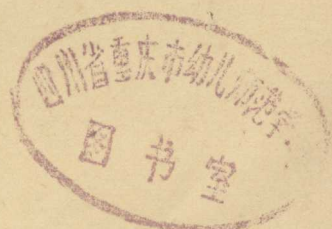 四川省重庆市幼儿师范学
图书室